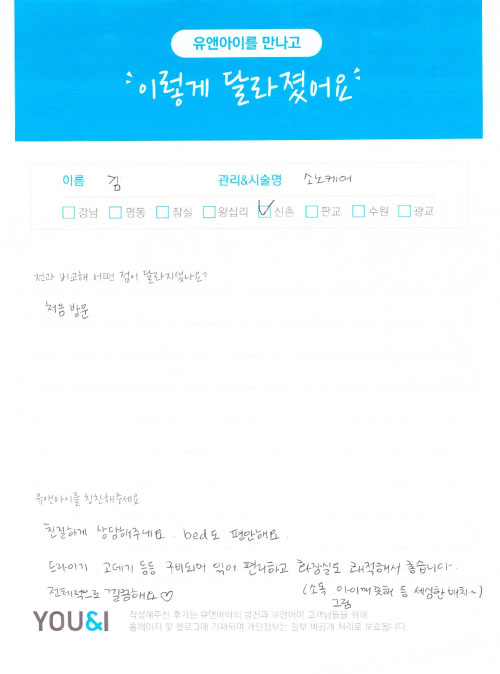 유앤아이를 만나고
이렇게 달라졌어요
이름 김 관리&시술명 소노케어
강남 명동 잠실 왕십리 신촌 판교 수원 광교
전과 비교해 어떤 점이 달라지셨나요?
처음 방문
유앤아이를 칭찬해주세요
친절하게 상담해주네요. bed도 편안해요.
드라이기 고데기 등등 구비되어 있어 편리하고 화장실도 쾌적해서 좋습니다.
전체적으로 깔끔해요♡ (소독, 아이 등 세심한 배치~)
그림
YOU&I 작성해주신 후기는 유앤아이의 발전과 유앤아이 고객님들을 위해
홈페이지 및 블로그에 기재되며 개인정보는 일부 비공개 처리로 보호됩니다.